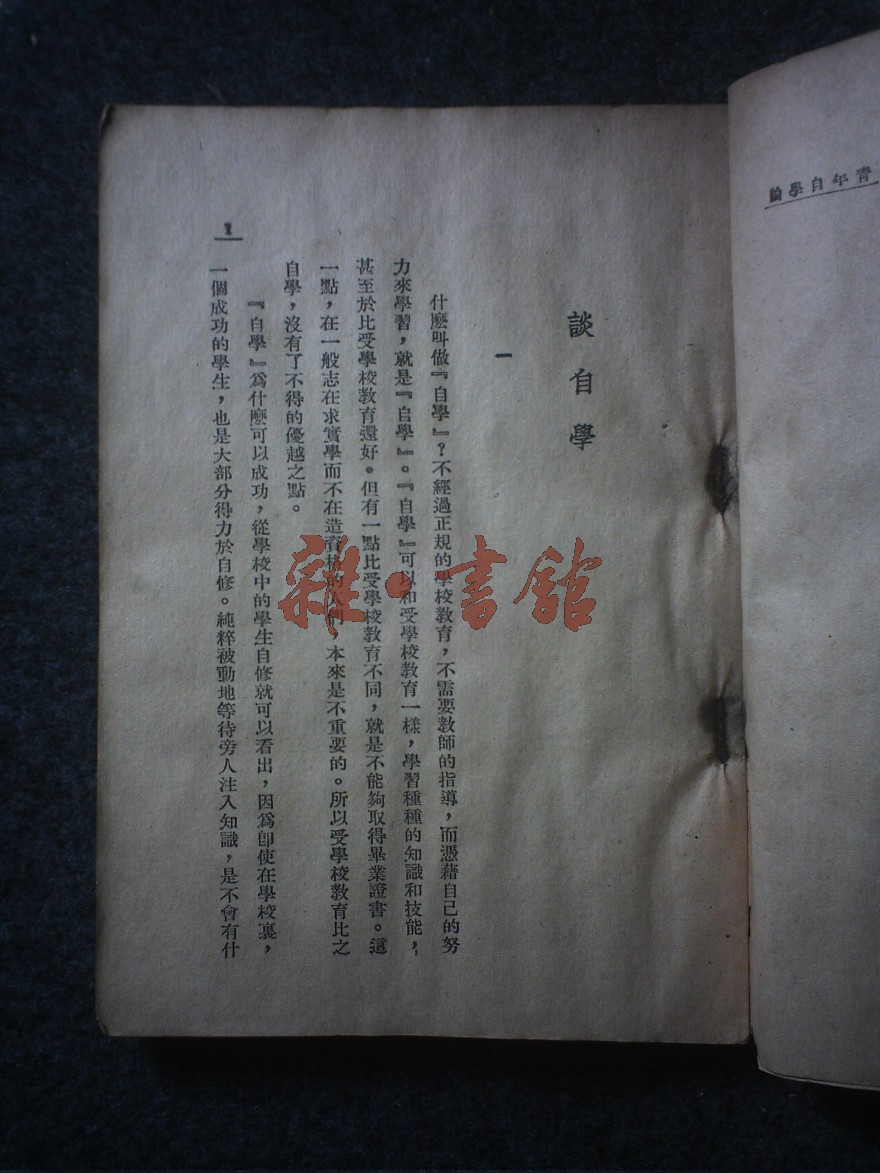 青年自學論
談自學
一
什麽叫做『自學』？不經過正規的學校教育，不需要教師的指導，而憑藉自己的努
力來學習，就是『自學』。『自學』可以和受學校教育一樣，學習種種的知識和技能，
甚至於比受學校教育還好。但有一點比受學校教育不同，就是不能夠取得畢業證書。這
一點，在一般志在求實學而不在造資格的人們，本來是不重要的。所以受學校教育比之
自學，沒有了不得的優越之點。
『自學』爲什麽可以成功，從學校中的學生自修就可以看出，因爲卽使在學校裏，
一個成功的學生，也是大部分得力於自修。純粹被動地等待旁人注入知識，是不會有什
1
雜·書館